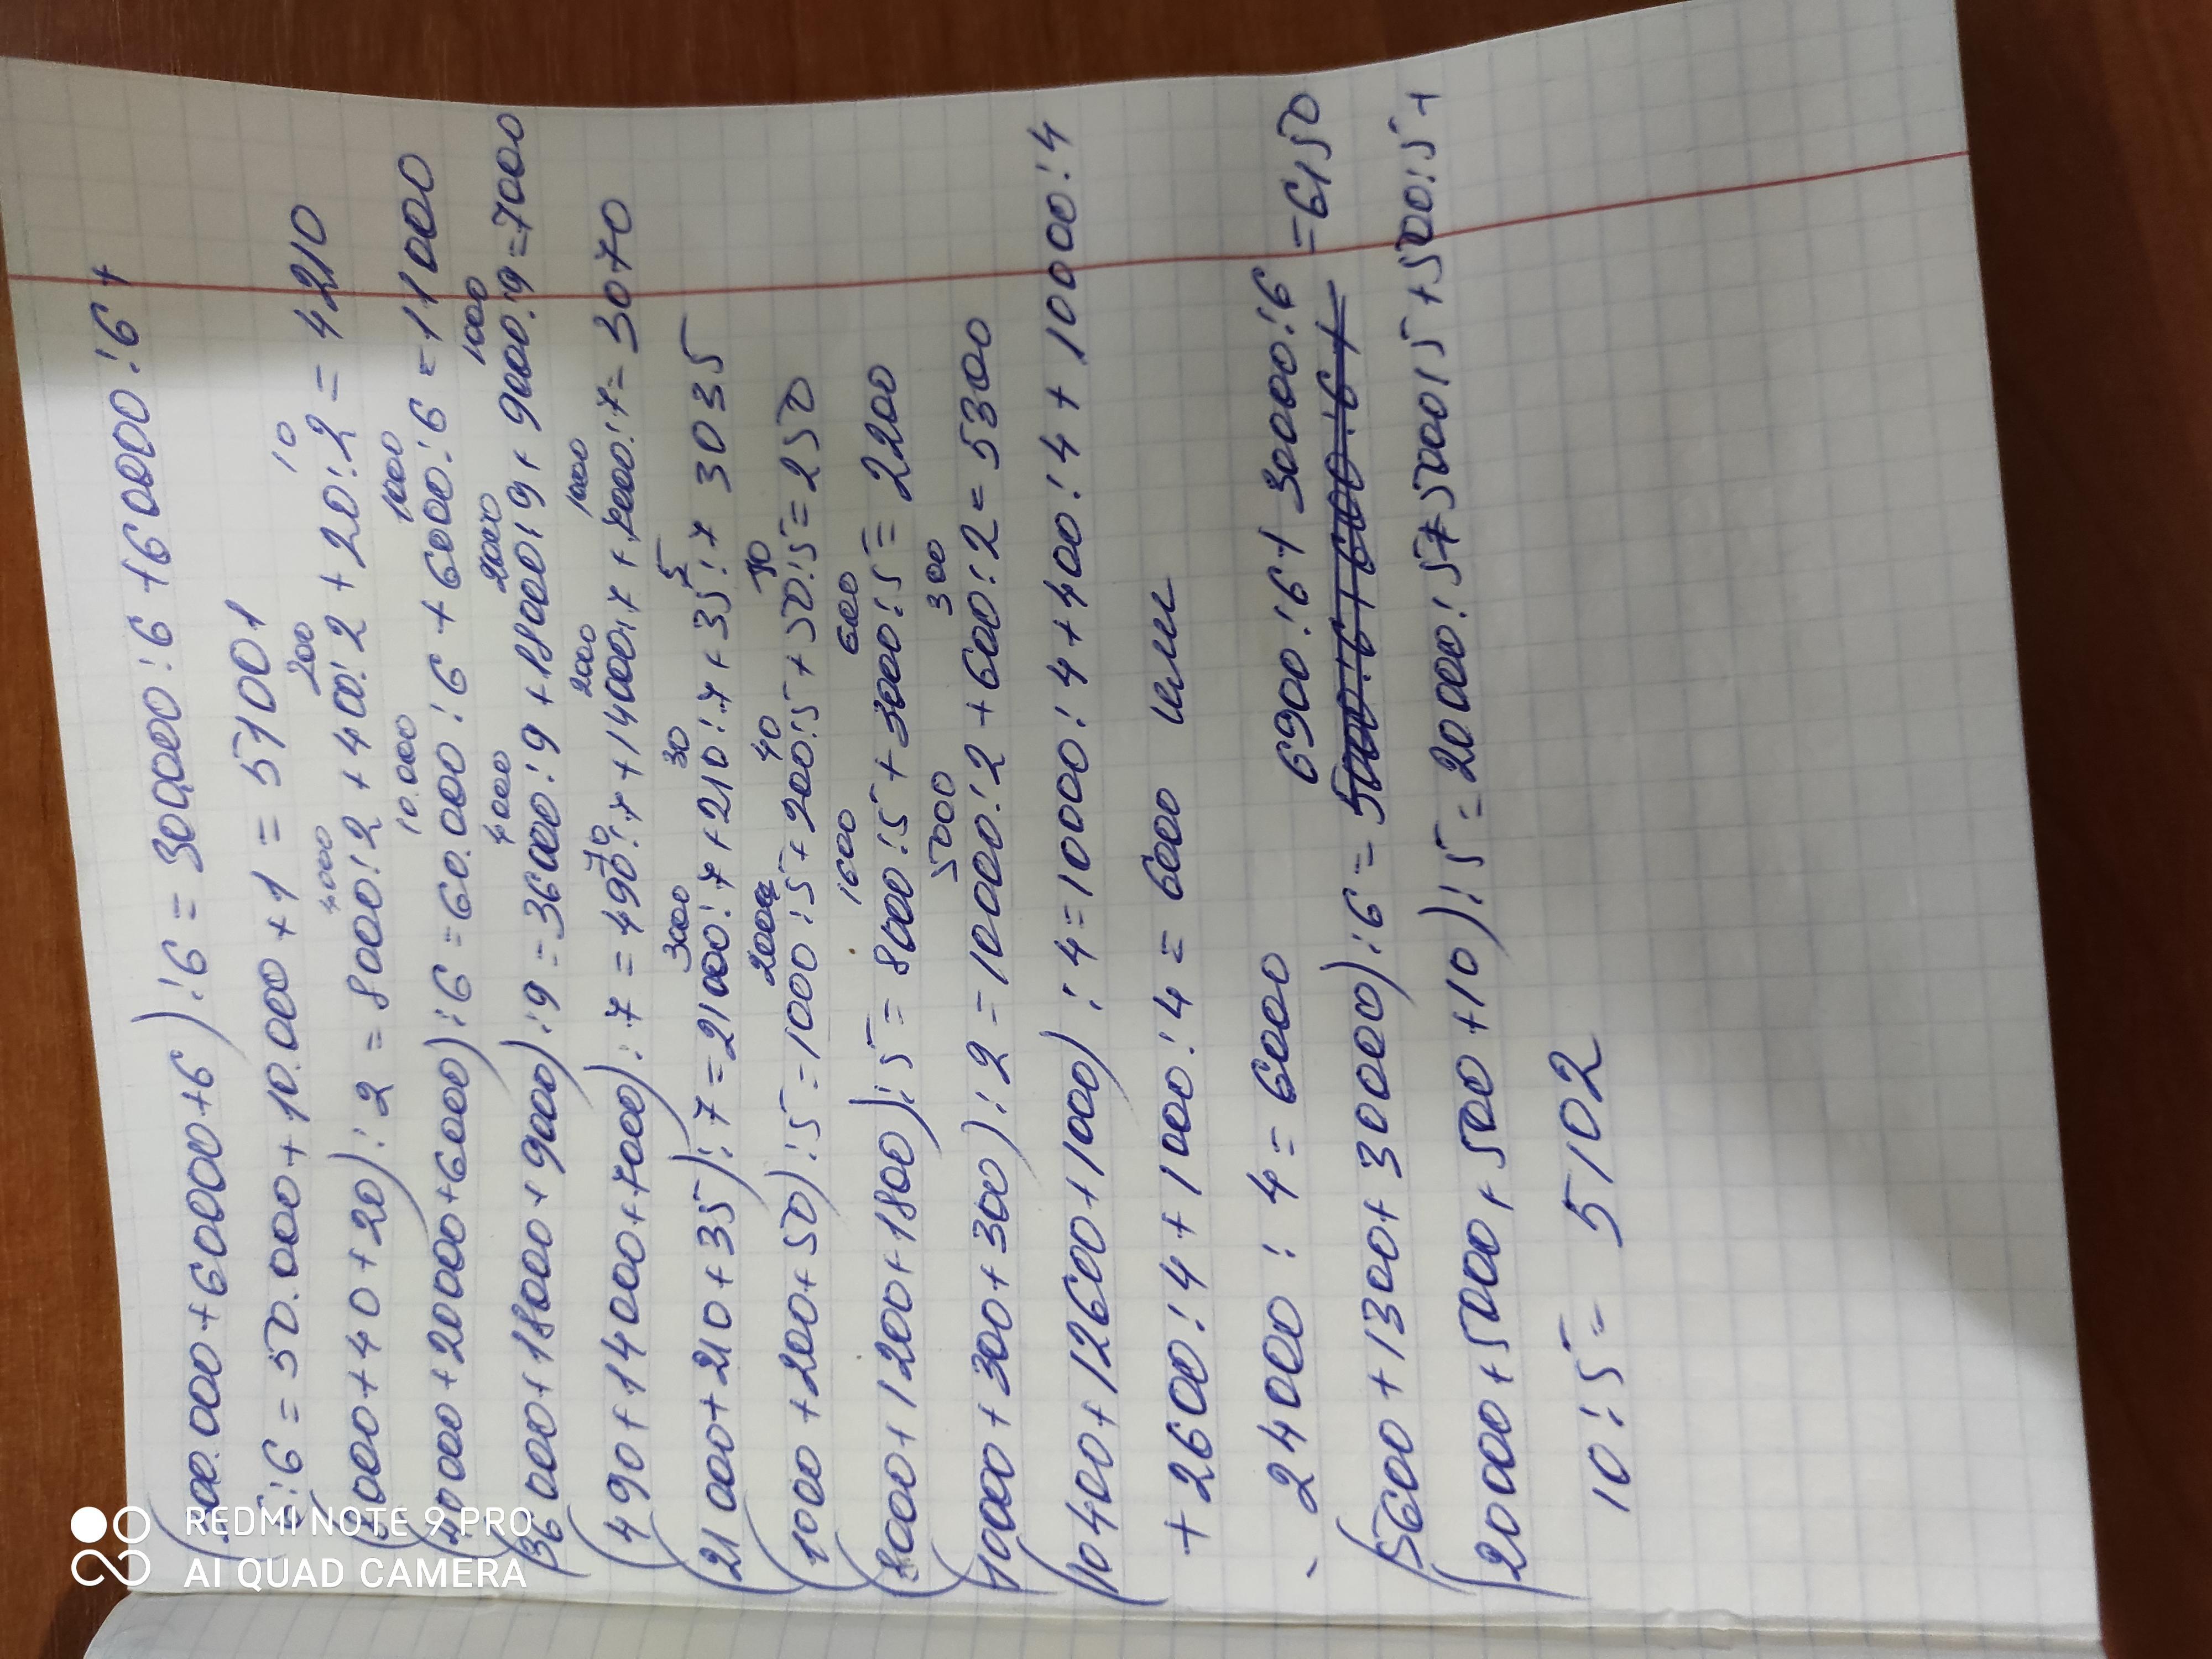 00.000+60000+6):6=300000:6+60000:6+
6:6=50.000+10.000+1=51001
10
4000 200
000+40+20):2=8000:2+400:2+20:2=4210
10.000 1000
000+20000+6000):6=60.000:6+6000:6=11000
4000 2000 1000
(36000+18000+9000):9=36000:9+18000:9+9000:9=7000
70 2000 1000
(490+14000+7000):7=490:7+14000:7+7000:7=3070
3000 30 5
(21000+210+35):7=21000:7+210:7+35:7 3035
2000 40 10
(1000+200+50):5=1000:5+200:5+50:5=250
1600 600
(8000+1200+1800):5=8000:5+3000:5=2200
5000 300
(10000+300+300):2=10000:2+600:2=5300
(10400+12600+1000):4=10000:4+400:4+10000:4
+2600:4+1000:4=6000 или
24000:4=6000
6900:6+30000:6=6150
(5600+1300+30000):6=
(20000+5000+500+10):5=20000:5+5000:5+500:5+
10:5=5102
REDMI NOTE 9 PRO
AI QUAD CAMERA